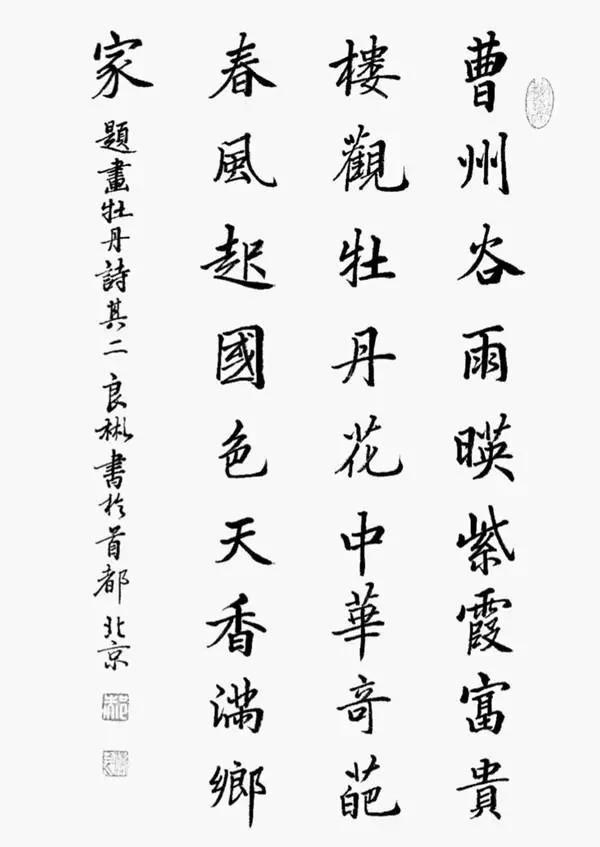 曹州谷雨暎紫霞富貴
樓觀牡丹花中華奇葩
春風起國色天香滿鄉
家
題畫牡丹詩其二 良彬書於首都北京